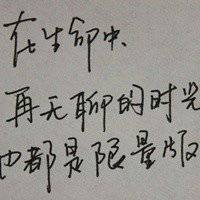 在生命中
再无聊的时光
也都是限量版